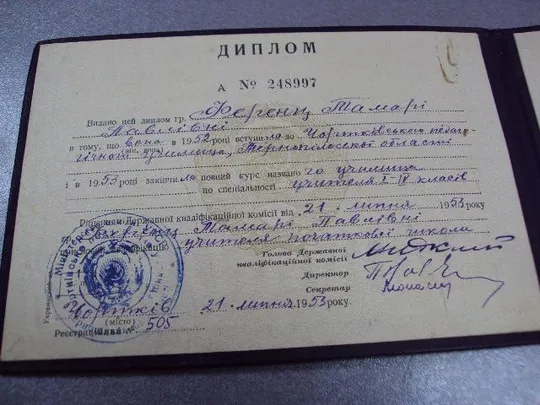 ДИПЛОМ
А № 248997
Видано цей диплом гр. Ференц Тамарі
Павлівні
в тому, що вона в 1952 році вступила до Чортківського педаго
гічного училища, Тернопільської області
і в 1953 році закінчила повний курс названого училища
по спеціальності учителя I-IV класів
Рішенням Державної кваліфікаційної комісії від 21 липня 1953
Ференц Тамарі Павлівні
учителя початкової школи
Голова Державної
кваліфікаційної комісії
Директор
Секретар
Чортків 21 липня 1953 року.
(місто)
Реєстраційний № 505